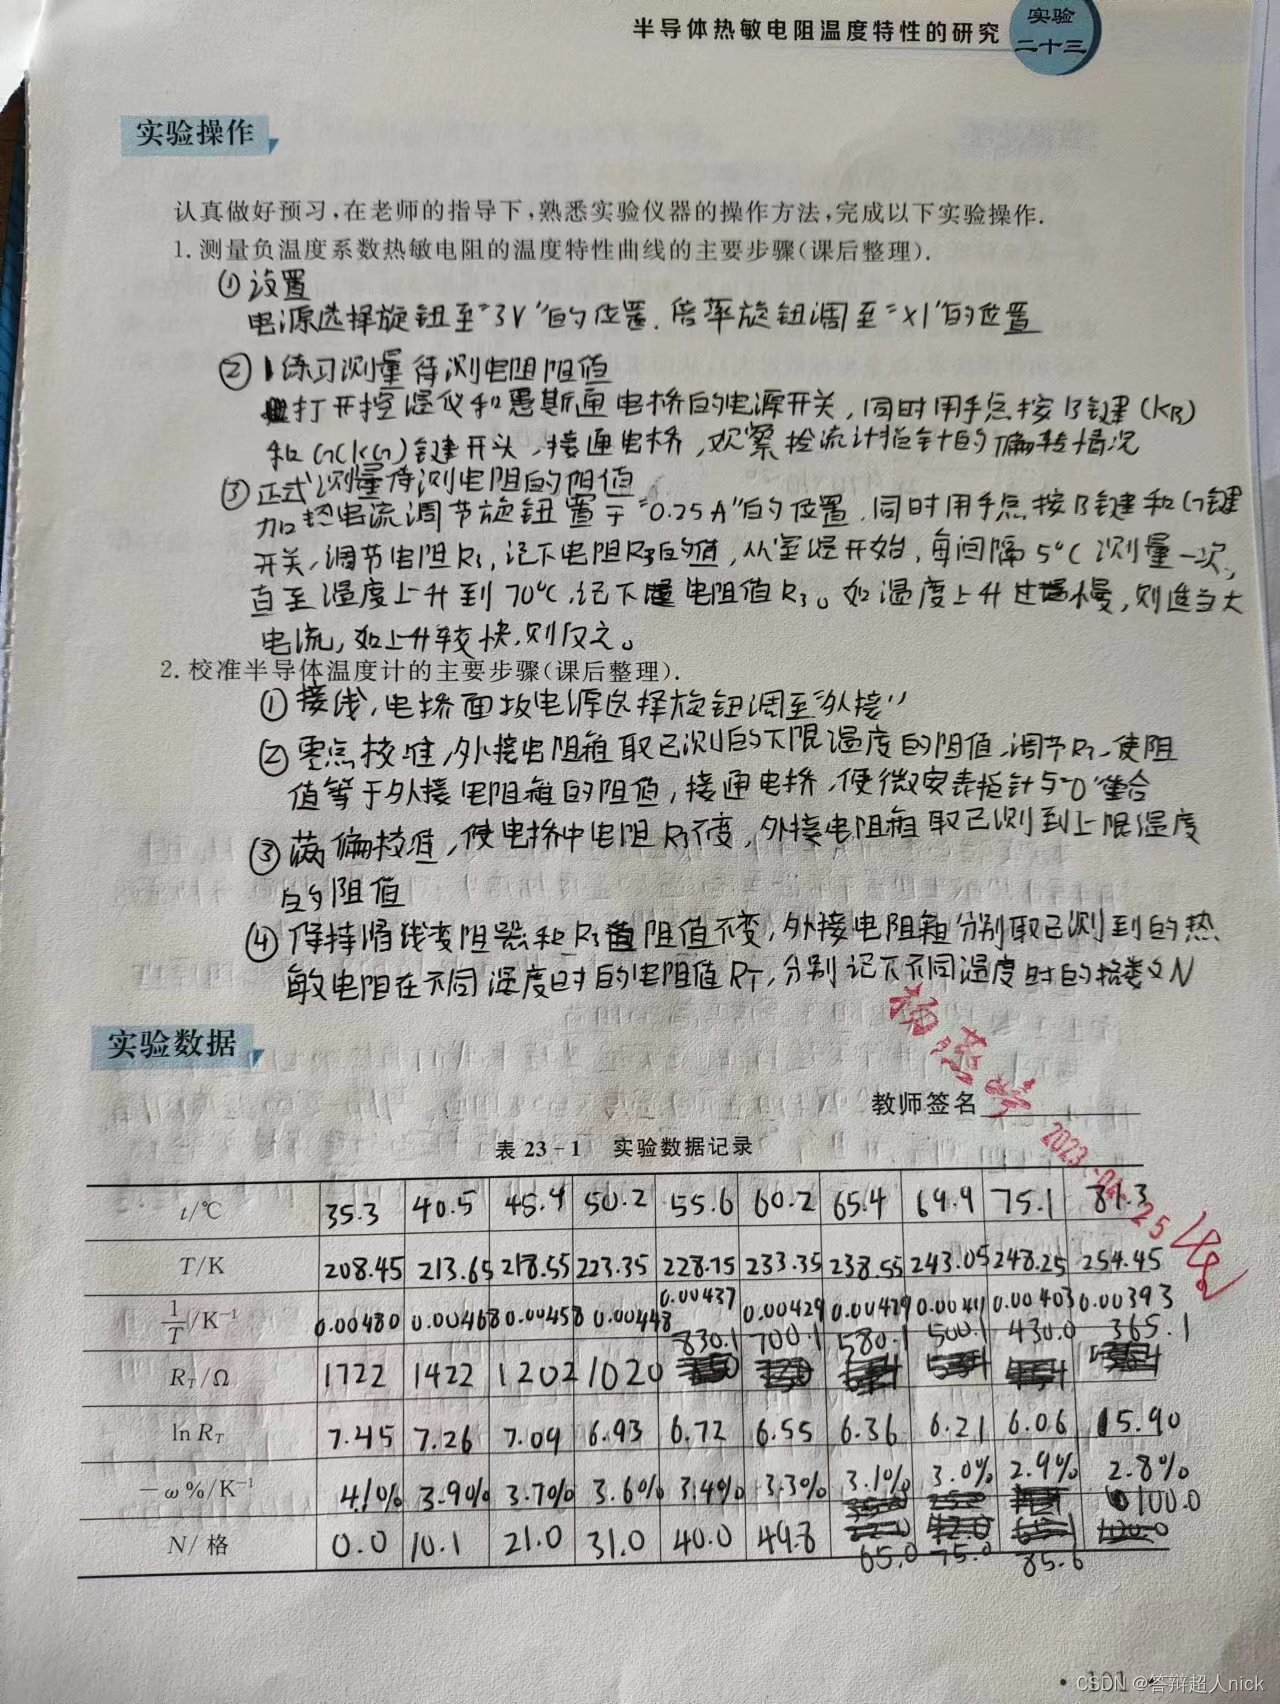 半导体热敏电阻温度特性的研究
实验
二十三
实验操作
认真做好预习,在老师的指导下,熟悉实验仪器的操作方法,完成以下实验操作.
1. 测量负温度系数热敏电阻的温度特性曲线的主要步骤(课后整理).
① 设置
电源选择旋钮至"3V"的位置,倍率旋钮调至"×1"的位置
② 练习测量待测电阻阻值
打开控温仪和惠斯通电桥的电源开关,同时用手点按B键(KB)
和G(KG)键开关,接通电桥,观察检流计指针的偏转情况
③ 正式测量待测电阻的阻值
加热电流调节旋钮置于"0.25A"的位置,同时用手点按B键和G键
开关,调节电阻R3,记下电阻R3的值,从室温开始,每间隔5°C测量一次,
直至温度上升到70°C,记下电阻值R3。如温度上升过慢,则适当大
电流,如上升较快,则反之。
2. 校准半导体温度计的主要步骤(课后整理).
① 接线,电桥面板电源选择旋钮调至"外接"
② 零点校准,外接电阻箱取已测的下限温度的阻值,调节R3,使阻
值等于外接电阻箱的阻值,接通电桥,使微安表指针与"0"重合
③ 满偏校准,使电桥中电阻R3不变,外接电阻箱取已测到上限温度
的阻值
④ 保持滑线变阻器和R3阻值不变,外接电阻箱分别取已测到的热
敏电阻在不同温度时的电阻值RT,分别记下不同温度时的格数N
实验数据
教师签名
2023.04.25
表 23-1 实验数据记录
t/℃ 35.3 40.5 45.4 50.2 55.6 60.2 65.4 69.9 75.1 81.3
T/K 208.45 213.65 218.55 223.35 228.75 233.35 238.55 243.05 248.25 254.45
1/T/K⁻¹ 0.00480 0.00468 0.00458 0.00448 0.00437 0.00429 0.00419 0.00411 0.00403 0.00393
R_T/Ω 1722 1422 1202 1020 830.1 700.1 580.1 500.1 430.0 365.1
ln R_T 7.45 7.26 7.09 6.93 6.72 6.55 6.36 6.21 6.06 5.90
-ω%/K⁻¹ 4.1% 3.9% 3.7% 3.6% 3.4% 3.3% 3.1% 3.0% 2.9% 2.8%
N/格 0.0 10.1 21.0 31.0 40.0 49.8 65.0 75.0 85.6 100.0
· 101 ·
CSDN @答辩超人nick